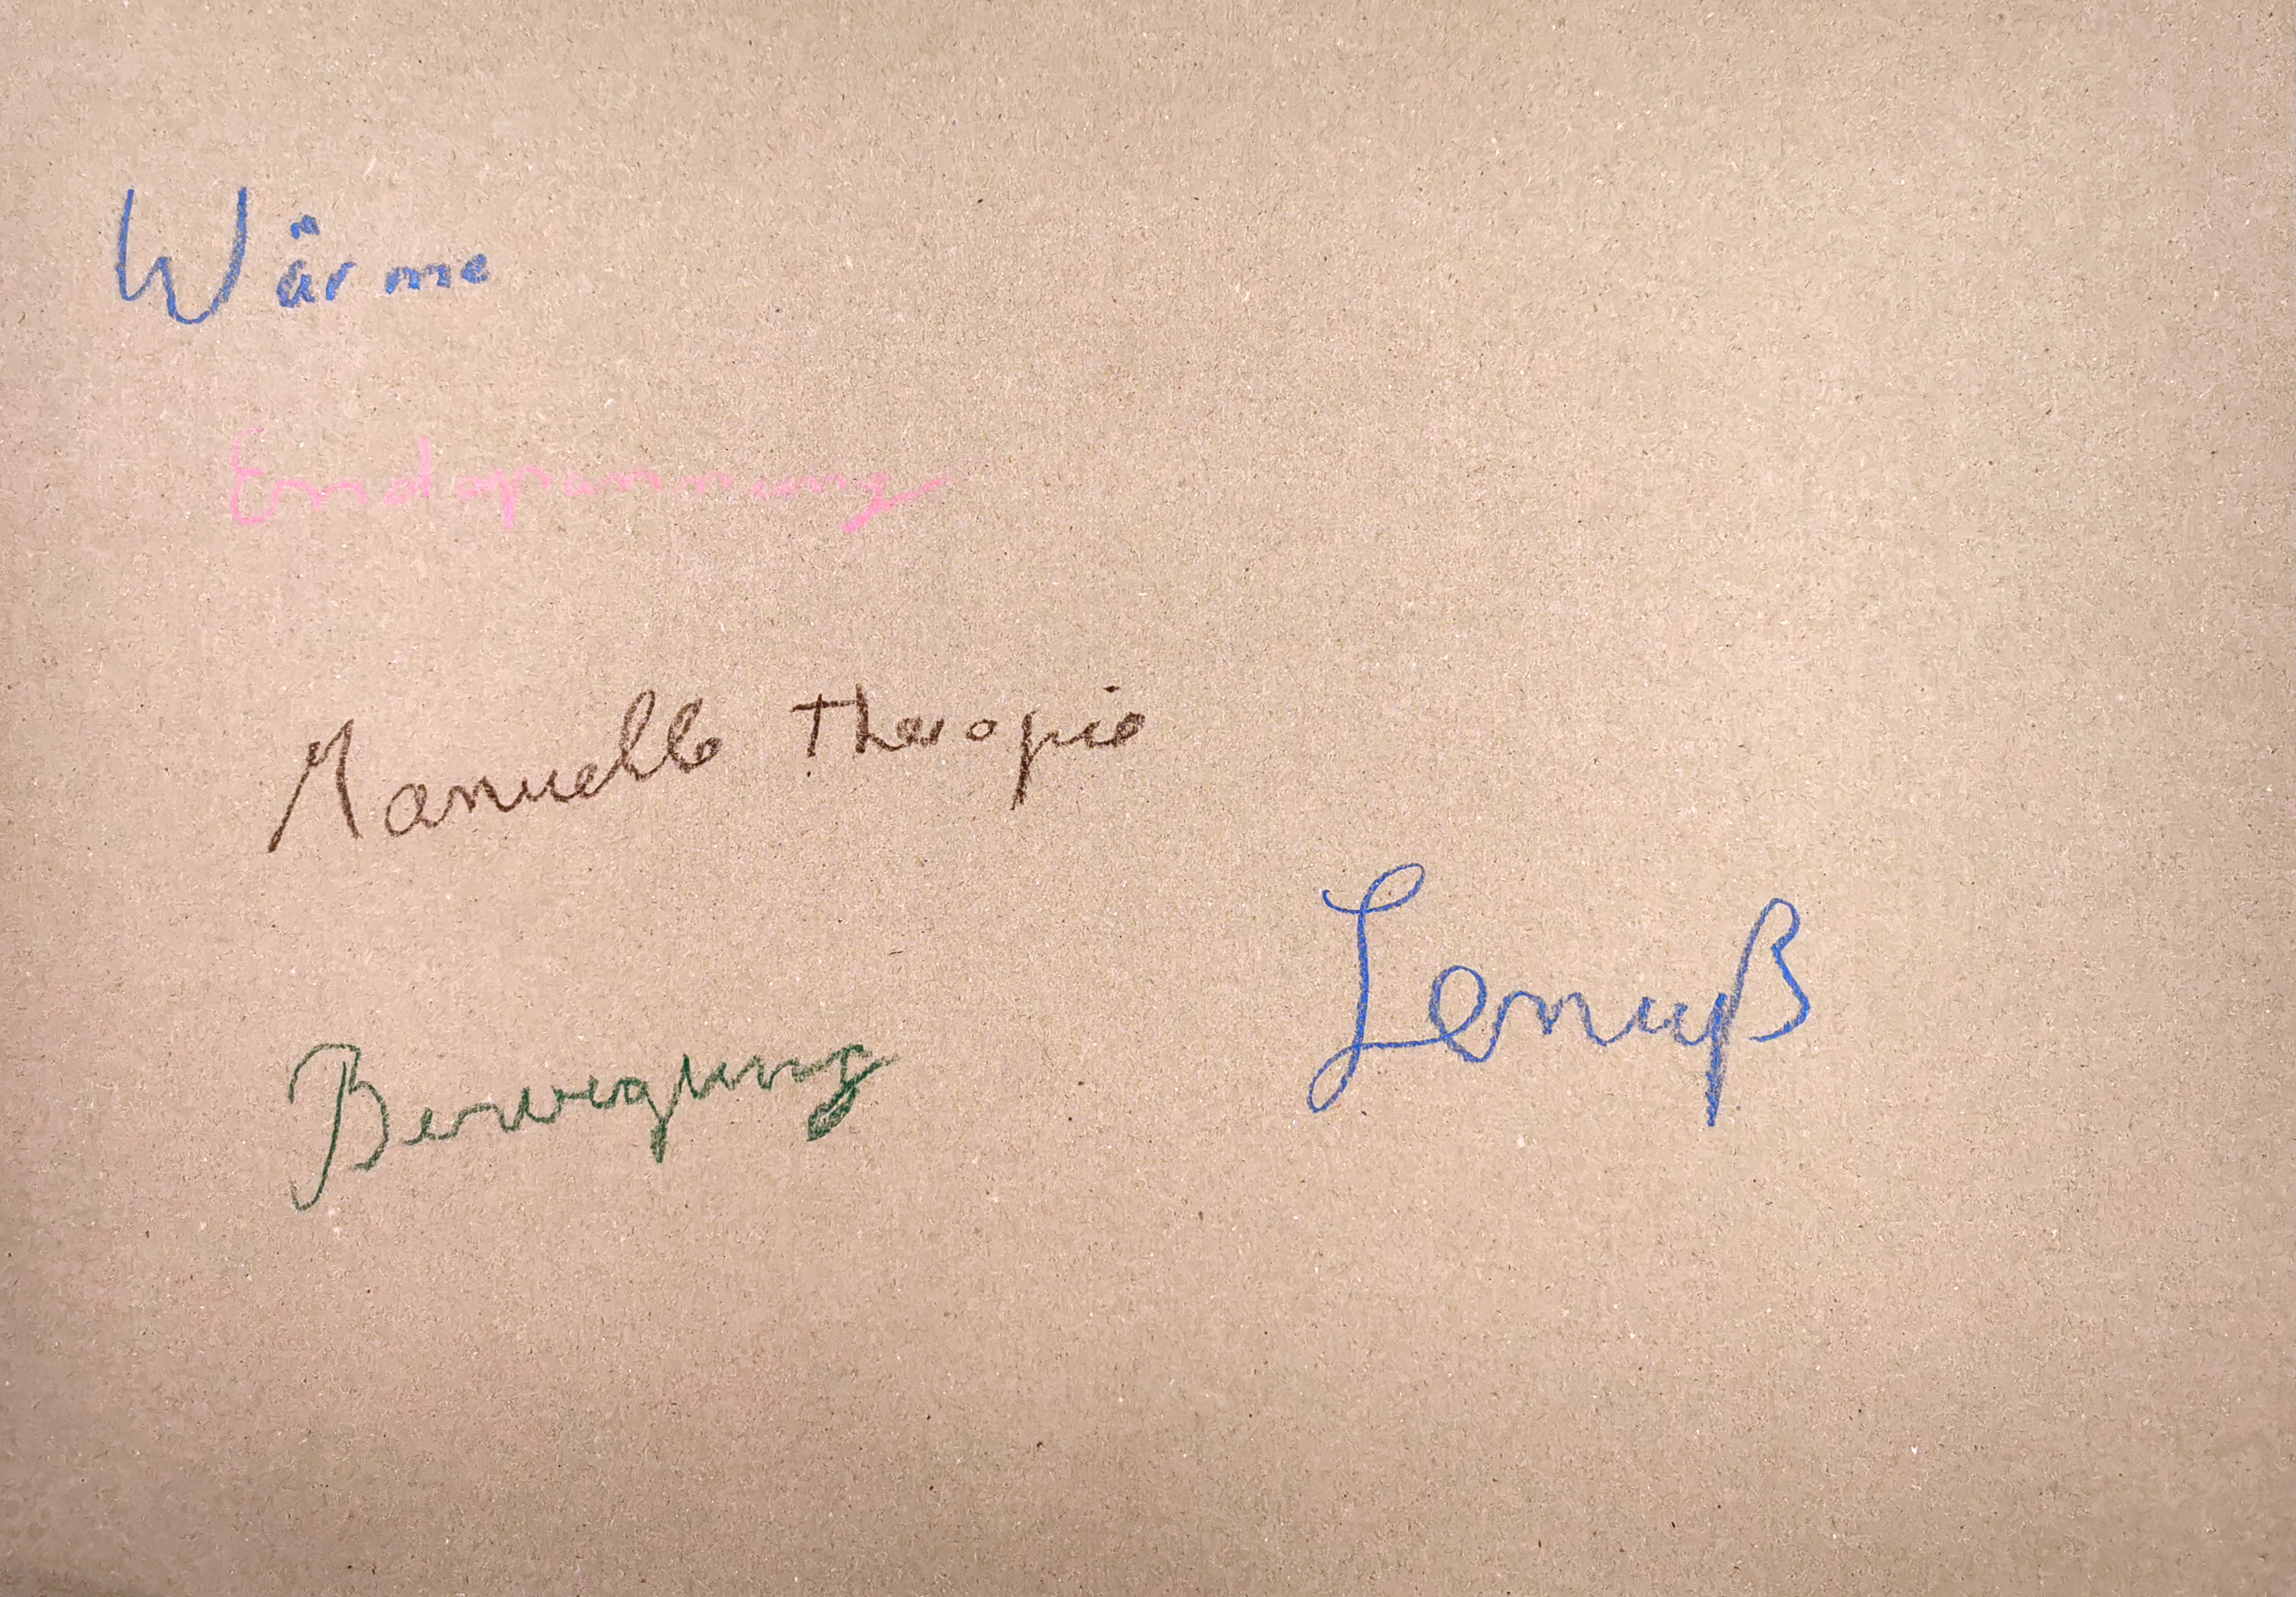 Wärme
Endspannung
Manuelle Therapie
Bewegung
Genuß